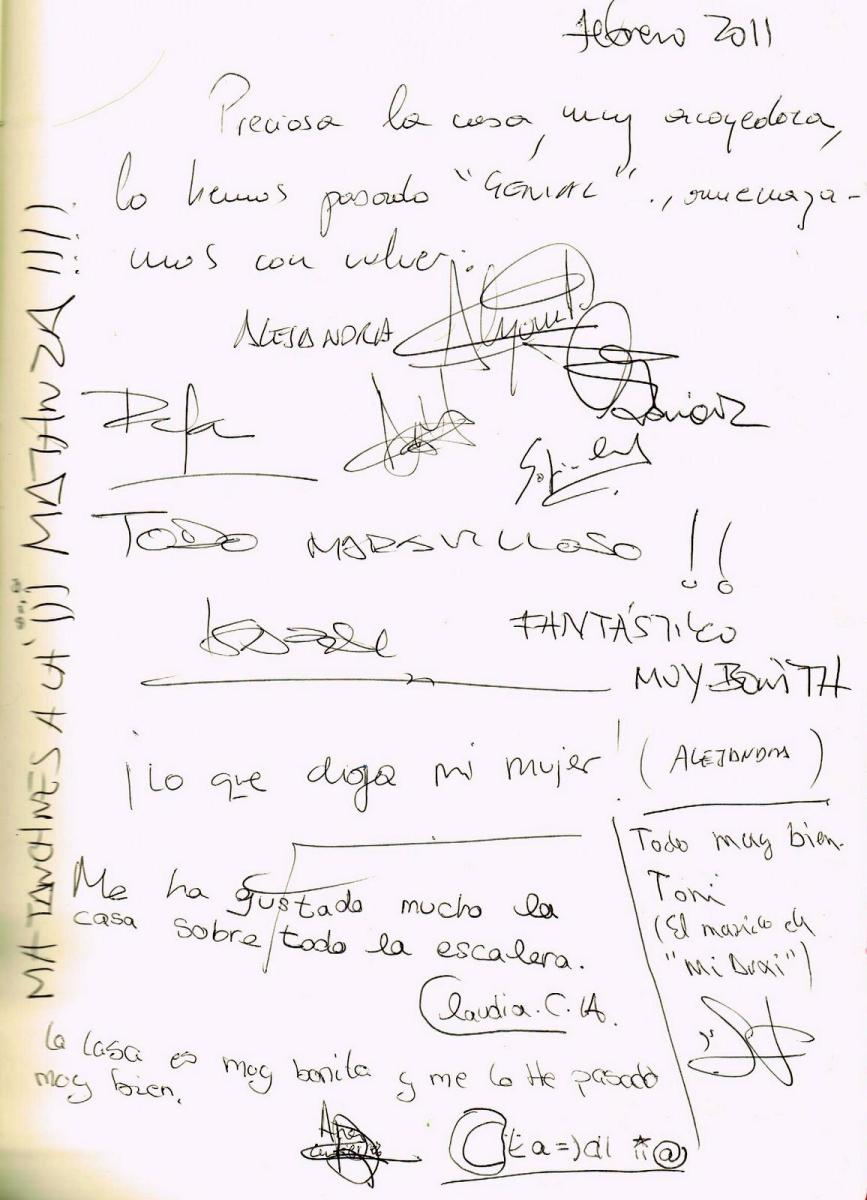 Febrero 2011
Preciosa la casa, muy acoyedora,
lo hemos pasado "GENIAL"., amenaza-
mos con volver.
ALEJANDRA
Rafa
TODO MARAVILLOSO !!
FANTÁSTICO
MUY BONITA
¡Lo que diga mi mujer! (ALEJANDRA)
Todo muy bien.
Toni
(El marido de
"Mi Druxi")
Me ha gustado mucho la
casa sobre todo la escalera.
Claudia. C. A.
La casa es muy bonita y me lo He pasado
muy bien.
Ana
MATANCHINES A LA ¡¡¡ MATANZA !!!!